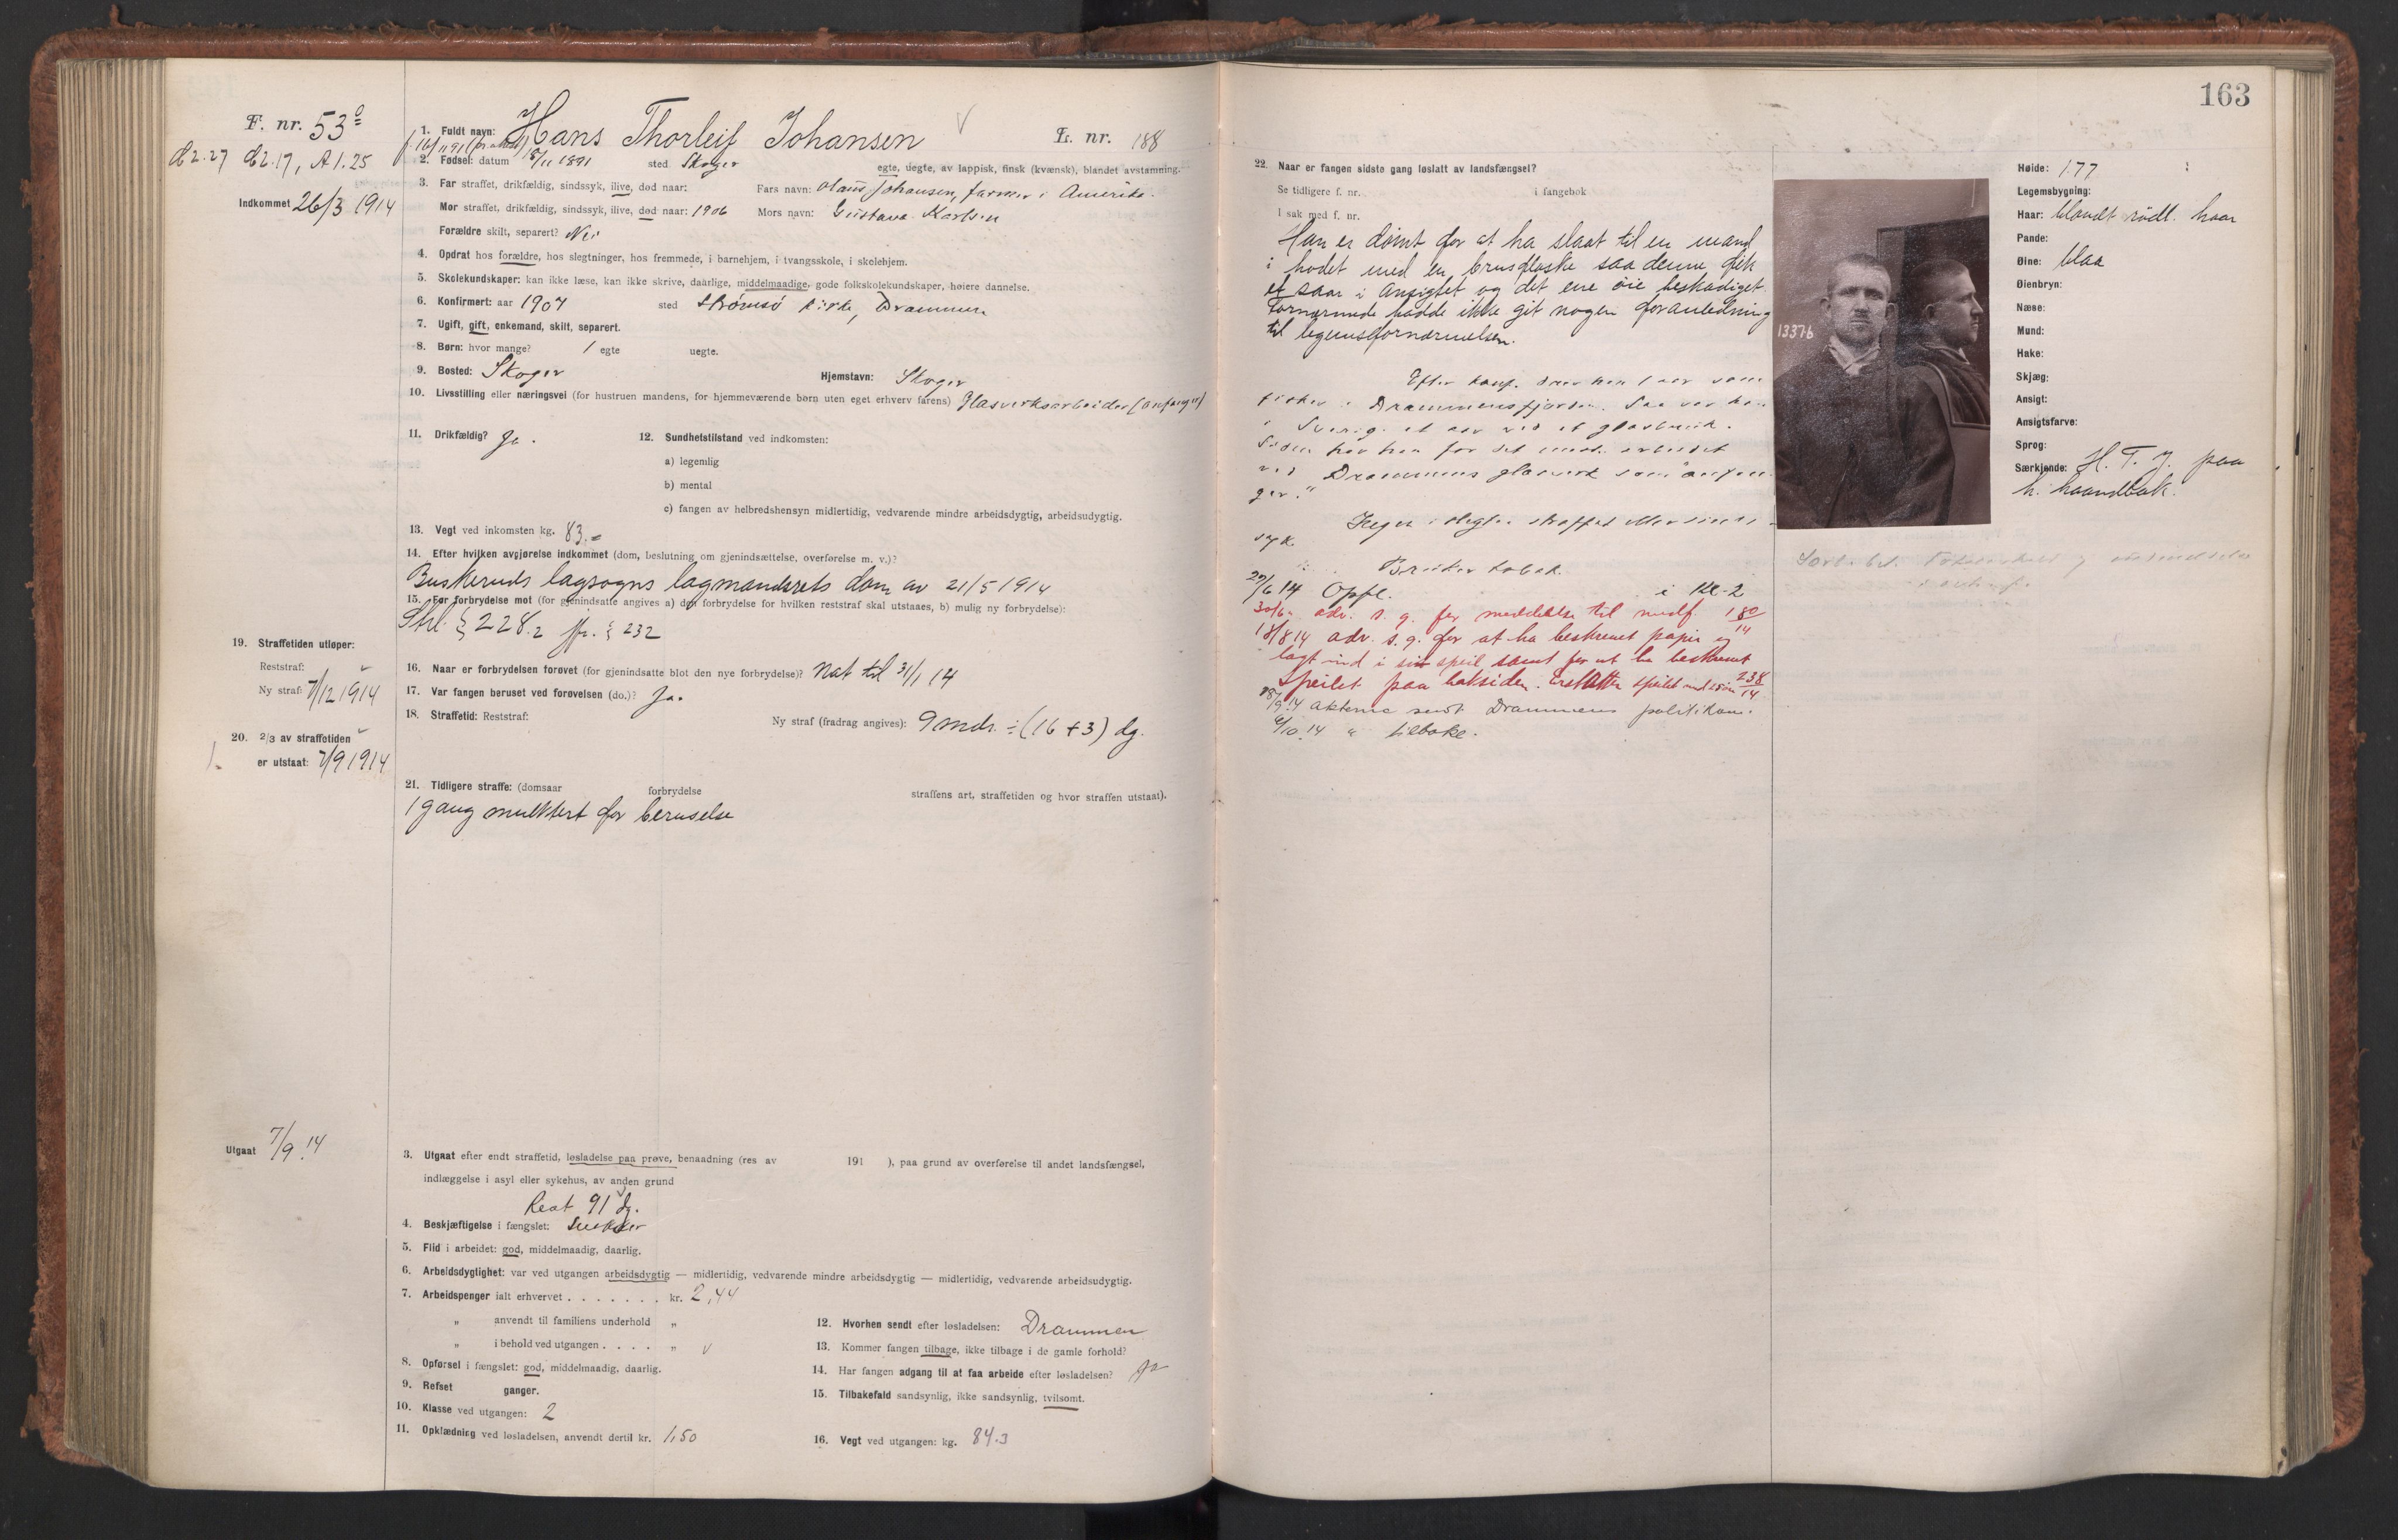 F. nr. 53
d2.27 d2.17, A1.25
Indkommet 26/3 1914
19. Straffetiden utløper:
Reststraf:
Ny straf: 7/12 1914
20. 2/3 av straffetiden
er utstaat: 7/9 1914
Utgaat 7/9.14
1. Fuldt navn: Hans Thorleif Johansen L. nr. 188
2. Fødsel: datum 18/11 1891 sted Skoger egte, uegte, av lappisk, finsk (kvænsk), blandet avstamning.
3. Far straffet, drikfældig, sindssyk, ilive, død naar: Fars navn: Olaus Johansen, farmer i Amerika.
Mor straffet, drikfældig, sindssyk, ilive, død naar: 1906 Mors navn: Gustava Karlsen
Forældre skilt, separert? Nei
4. Opdrat hos forældre, hos slegtninger, hos fremmede, i barnehjem, i tvangsskole, i skolehjem.
5. Skolekundskaper: kan ikke læse, kan ikke skrive, daarlige, middelmaadige, gode folkskolekundskaper, høiere dannelse.
6. Konfirmert: aar 1907 sted Strømsø kirke, Drammen
7. Ugift, gift, enkemand, skilt, separert.
8. Børn: hvor mange? 1 egte uegte.
9. Bosted: Skoger Hjemstavn: Skoger
10. Livsstilling eller næringsvei (for hustruen mandens, for hjemmeværende børn uten eget erhverv farens) Glasverksarbeider (anfanger)
11. Drikfældig? Ja. 12. Sundhetstilstand ved indkomsten:
a) legemlig
b) mental
c) fangen av helbredshensyn midlertidig, vedvarende mindre arbeidsdygtig, arbeidsudygtig.
13. Vegt ved inkomsten kg. 83.=
14. Efter hvilken avgjørelse indkommet (dom, beslutning om gjenindsættelse, overførelse m. v.)?
Buskeruds lagsogns lagmandsrets dom av 21/5 1914
15. For forbrydelse mot (for gjenindsatte angives a) den forbrydelse for hvilken reststraf skal utstaaes, b) mulig ny forbrydelse):
Strl. § 228.2 jfr. § 232
16. Naar er forbrydelsen forøvet (for gjenindsatte blot den nye forbrydelse)? Nat til 31/1 14
17. Var fangen beruset ved forøvelsen (do.)? Ja.
18. Straffetid: Reststraf: Ny straf (fradrag angives): 9 mdr. ÷ (16 + 3) dg.
21. Tidligere straffe: (domsaar forbrydelse straffens art, straffetiden og hvor straffen utstaat).
1 gang mulktert for beruselse
3. Utgaat efter endt straffetid, løsladelse paa prøve, benaadning (res av 191 ), paa grund av overførelse til andet landsfængsel,
indlæggelse i asyl eller sykehus, av anden grund
Rest 91 dg.
4. Beskjæftigelse i fængslet: Snekker
5. Flid i arbeidet: god, middelmaadig, daarlig.
6. Arbeidsdyglighet: var ved utgangen arbeidsdygtig — midlertidig, vedvarende mindre arbeidsdygtig — midlertidig, vedvarende arbeidsudygtig.
7. Arbeidspenger ialt erhvervet . . . . . . . kr. 2,44
„ anvendt til familiens underhold „
„ i behold ved utgangen . . . . „
8. Opførsel i fængslet: god, middelmaadig, daarlig.
9. Refset ganger.
10. Klasse ved utgangen: 2
11. Opklædning ved løsladelsen, anvendt dertil kr. 1,50
12. Hvorhen sendt efter løsladelsen: Drammen
13. Kommer fangen tilbage, ikke tilbage i de gamle forhold?
14. Har fangen adgang til at faa arbeide efter løsladelsen? Ja
15. Tilbakefald sandsynlig, ikke sandsynlig, tvilsomt.
16. Vegt ved utgangen: kg. 84.3
163
22. Naar er fangen sidste gang løslatt av landsfængsel?
Se tidligere f. nr. i fangebok
I sak med f. nr.
Han er dømt for at ha slaat til en mand
i hodet med en brusflaske saa denne fik
et saar i ansigtet og det ene øie beskadiget.
Fornærmede hadde ikke git nogen foranledning
til legemsfornærmelsen.
Efter konf. drev han 1 aar som
fisker i Drammensfjorden. Saa var han
i Sverige et aar ved et glasbruk.
Siden har han for det meste arbeidet
ved Drammens glasverk som "anfan-
ger."
Ingen i slegten straffet eller sinds-
syk.
Bruker tobak.
29/6 14 Opfl. i Kl. 2
30/6 „ adv. s. g. for meddelelse til medf. 180/14
18/8 14 adv. s. g. for at ha beskrevet papir og
lagt ind i sit speil samt for at ha beskrevet
Speilet paa baksiden. Erstatter speilet med 25 øre 238/14
18/9.14 Akterne sendt Drammens politikam.
6/10.14 „ tilbake.
13376
Høide: 177
Legemsbygning:
Haar: blondt rødl. haar
Pande:
Øine: blaa
Øienbryn:
Næse:
Mund:
Hake:
Skjæg:
Ansigt:
Ansigtsfarve:
Sprog:
Særkjende: H. T. J. paa
h. haandbak.